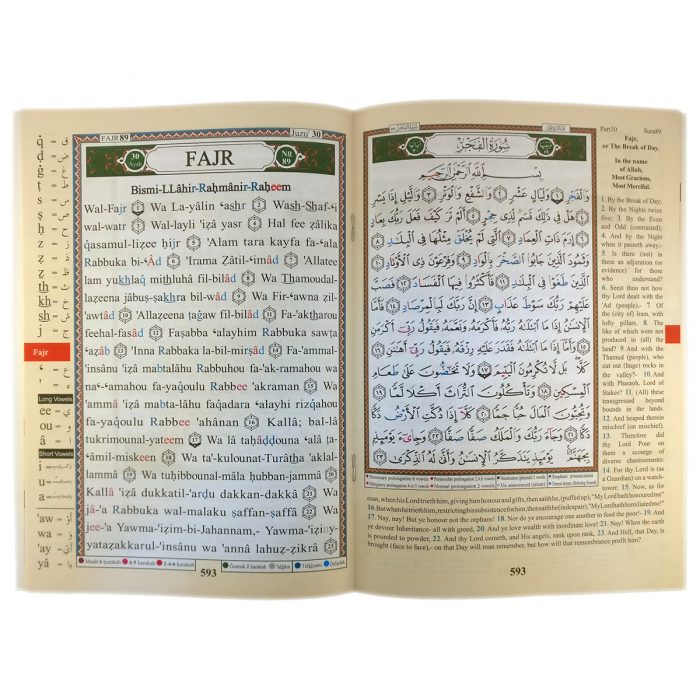 FAJR 89
Juzu' 30
30
Ayat
FAJR
No
89
Bismi-LLâhir-Raḥmânir-Raḥeem
Wal-Fajr 1 Wa La-yâlin ʻashr 2 Wash-Shaf-ʻi
wal-watr 3 Wal-layli 'iẓâ yasr 4 Hal fee ẓâlika
qasamul-liẓee ḥijr 5 'Alam tara kayfa fa-ʻala
Rabbuka bi-ʻÂd 6 'Irama Ẓâtil-ʻimâd 7 'Allatee
lam yukhlaq mithluhâ fil-bilâd 8 Wa Thamoudal-
laẓeena jâbuṣ-ṣakhra bil-wâd 9 Wa Fir-ʻawna ẓil-
'awtâd 10 'Allaẓeena ṭaġaw fil-bilâd 11 Fa-'aktharou
feehal-fasâd 12 Faṣabba ʻalayhim Rabbuka sawṭa
ʻaẓâb 13 'Inna Rabbaka la-bil-mirṣâd 14 Fa-'ammal-
'insânu 'iẓâ mabtalâhu Rabbuhou fa-'ak-ramahou wa
na-ʻ-amahou fa-yaqoulu Rabbee 'akraman 15 Wa
'ammâ 'iẓâ mabta-lâhu faqadara ʻalayhi rizqahou
fa-yaqoulu Rabbee 'ahânan 16 Kallâ; bal-lâ
tukrimounal-yateem 17 Wa lâ taḥâḍḍouna ʻalâ ṭa-
ʻâmil-miskeen 18 Wa ta'-kulounat-Turâtha 'aklal-
lammâ 19 Wa tuḥibbounal-mâla ḥubban-jammâ 20
Kallâ 'iẓâ dukkatil-'arḍu dakkan-dakkâ 21 Wa
jâ-'a Rabbuka wal-malaku ṣaffan-ṣaffâ 22 Wa
jee-'a Yawma-'iẓim-bi-Jahannam,- Yawma-'iẓiny-
yataẓakkarul-'insânu wa 'annâ lahuẓ-ẓikrâ 23
Madd 6 ḥarakah 4-5 ḥarakah 2-4-6 ḥarakah Ġunnah 2 ḥarakah 'Idġâm Tafkheem Qalqalah
593
q̇ ق
ḍ ض
ġ غ
ṭ ط
ṣ ص
ḥ ح
z ز
ẓ ذ
th ث
kh خ
sh ش
j ج
Fajr
ʻ ع
' ء
Long Vowels
ee ي
ou و
â ا
Short Vowels
i
u
a
'aw
wa وَ
'ay
yâ يا
سُورَةُ الفَجْرِ
بِسْمِ اللَّهِ الرَّحْمَٰنِ الرَّحِيمِ
وَالْفَجْرِ ١ وَلَيَالٍ عَشْرٍ ٢ وَالشَّفْعِ وَالْوَتْرِ ٣ وَاللَّيْلِ إِذَا يَسْرِ
٤ هَلْ فِي ذَٰلِكَ قَسَمٌ لِّذِي حِجْرٍ ٥ أَلَمْ تَرَ كَيْفَ فَعَلَ رَبُّكَ بِعَادٍ
٦ إِرَمَ ذَاتِ الْعِمَادِ ٧ الَّتِي لَمْ يُخْلَقْ مِثْلُهَا فِي الْبِلَادِ ٨
وَثَمُودَ الَّذِينَ جَابُوا الصَّخْرَ بِالْوَادِ ٩ وَفِرْعَوْنَ ذِي الْأَوْتَادِ ١٠
الَّذِينَ طَغَوْا فِي الْبِلَادِ ١١ فَأَكْثَرُوا فِيهَا الْفَسَادَ ١٢ فَصَبَّ
عَلَيْهِمْ رَبُّكَ سَوْطَ عَذَابٍ ١٣ إِنَّ رَبَّكَ لَبِالْمِرْصَادِ ١٤ فَأَمَّا
الْإِنسَانُ إِذَا مَا ابْتَلَاهُ رَبُّهُ فَأَكْرَمَهُ وَنَعَّمَهُ فَيَقُولُ رَبِّي أَكْرَمَنِ
١٥ وَأَمَّا إِذَا مَا ابْتَلَاهُ فَقَدَرَ عَلَيْهِ رِزْقَهُ فَيَقُولُ رَبِّي أَهَانَنِ
١٦ كَلَّا بَل لَّا تُكْرِمُونَ الْيَتِيمَ ١٧ وَلَا تَحَاضُّونَ عَلَىٰ طَعَامِ
الْمِسْكِينِ ١٨ وَتَأْكُلُونَ التُّرَاثَ أَكْلًا لَّمًّا ١٩
وَتُحِبُّونَ الْمَالَ حُبًّا جَمًّا ٢٠ كَلَّا إِذَا دُكَّتِ الْأَرْضُ دَكًّا دَكًّا
٢١ وَجَاءَ رَبُّكَ وَالْمَلَكُ صَفًّا صَفًّا ٢٢ وَجِيءَ يَوْمَئِذٍ
بِجَهَنَّمَ يَوْمَئِذٍ يَتَذَكَّرُ الْإِنسَانُ وَأَنَّىٰ لَهُ الذِّكْرَىٰ ٢٣
Necessary prolongation 6 vowels Permissible prolongation 2,4,6 vowels Nazalization (ghunnah) 2 vowels Emphatic pronunciation
Obligatory prolongation 4 or 5 vowels Normal prolongation 2 vowels Un announced (silent)
Part30 Sura89
Fajr,
or The Break of Day.
In the name
of Allah,
Most Gracious,
Most Merciful.
1. By the Break of Day;
2. By the Nights twice
five; 3. By the Even
and Odd (contrasted);
4. And by the Night
when it passeth away;-
5. Is there (not) in
these an adjuration (or
evidence) for those
who understand?
6. Seest thou not how
thy Lord dealt with the
'Ad (people),- 7. Of
the (city of) Iram, with
lofty pillars, 8. The
like of which were not
produced in (all) the
land? 9. And with the
Thamud (people), who
cut out (huge) rocks in
the valley?- 10. And
with Pharaoh, Lord of
Stakes? 11. (All) these
transgressed beyond
bounds in the lands.
12. And heaped therein
mischief (on mischief).
13. Therefore did
thy Lord Pour on
them a scourge of
diverse chastisements:
14. For thy Lord is (as
a Guardian) on a watch-
tower. 15. Now, as for
man, when his Lord trieth him, giving him honour and gifts, then saith he, (puffed up), "My Lord hath honoured me!"
16. But when he trieth him, restricting his subsistence for him, then saith he (in despair), "My Lord hath humiliated me!"
17. Nay, nay! But ye honour not the orphans! 18. Nor do ye encourage one another to feed the poor!- 19. And
ye devour Inheritance- all with greed, 20. And ye love wealth with inordinate love! 21. Nay! When the earth
is pounded to powder, 22. And thy Lord cometh, and His angels, rank upon rank, 23. And Hell, that Day, is
brought (face to face),- on that Day will man remember, but how will that remembrance profit him?
593